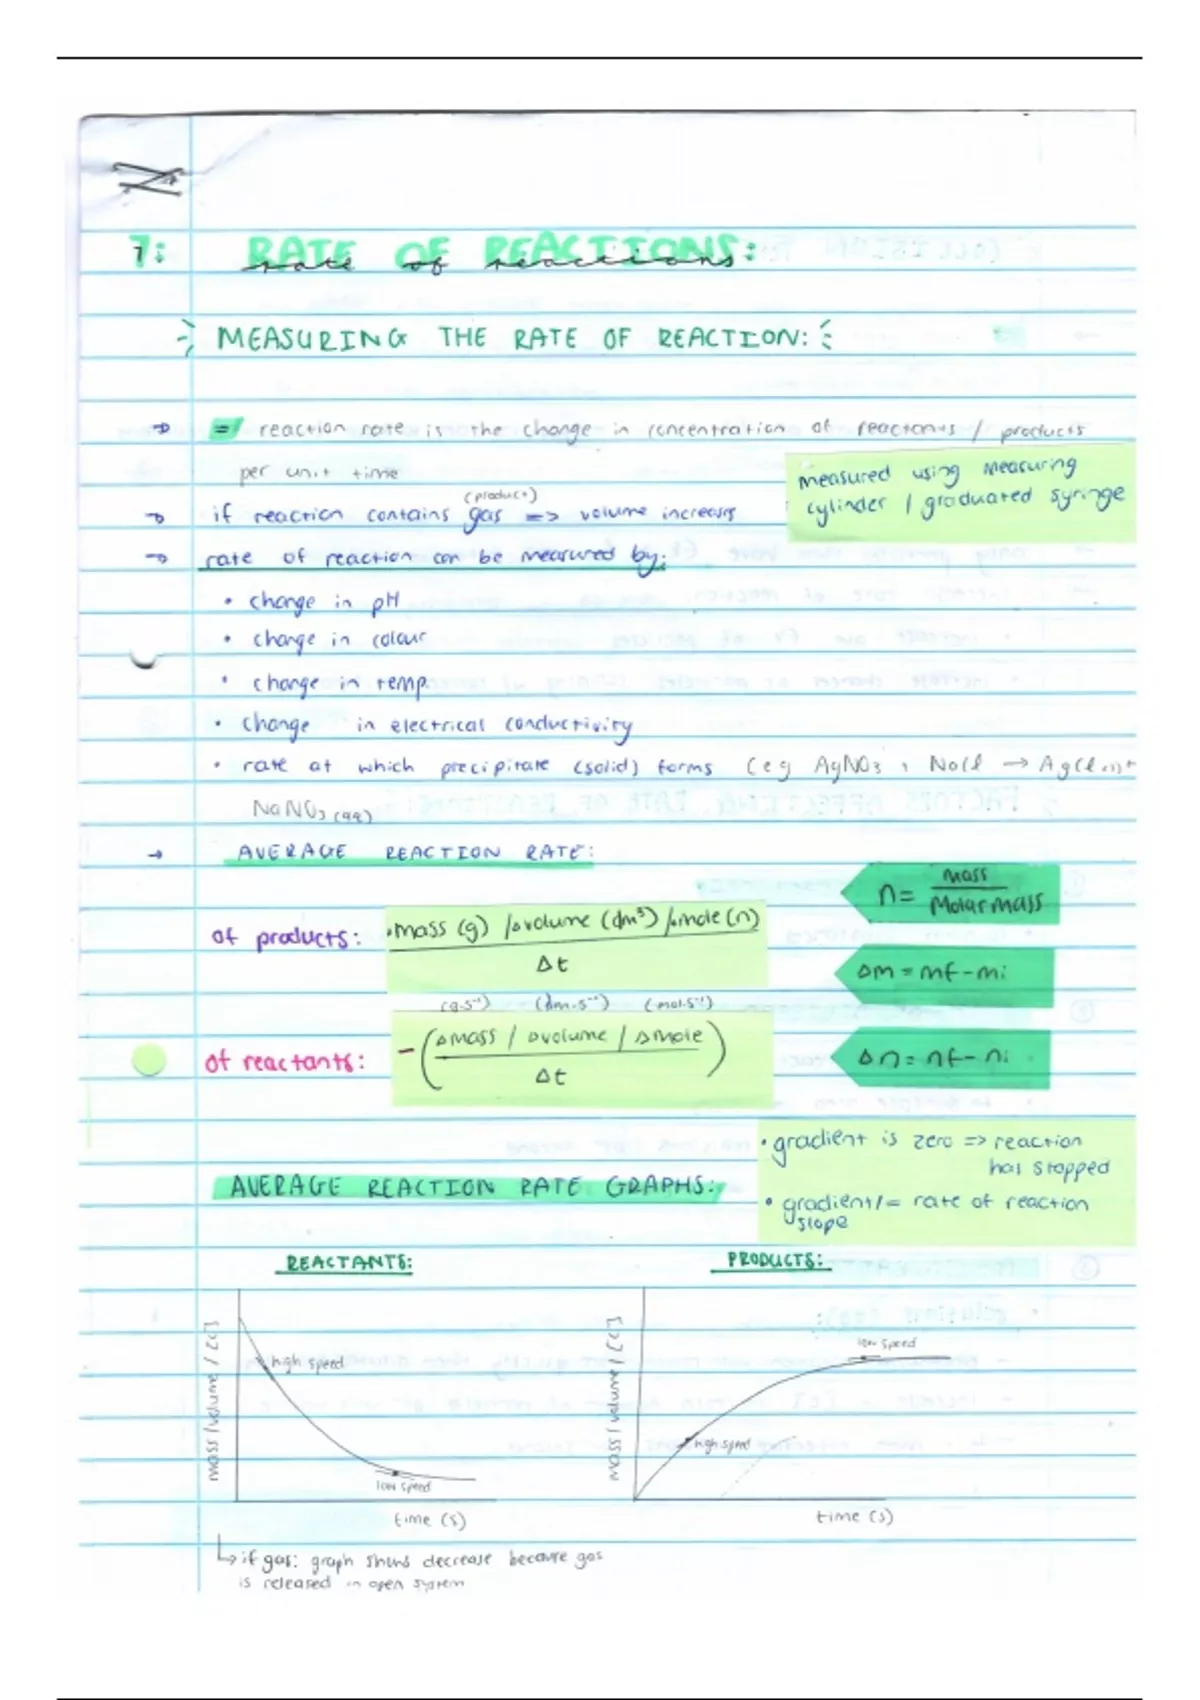 7: RATE OF REACTIONS:
rate of reactions
MEASURING THE RATE OF REACTION:
→ = reaction rate is the change in concentration of reactants / products
per unit time
measured using measuring
cylinder / graduated syringe
(product)
→ if reaction contains gas => volume increases
→ rate of reaction can be measured by:
• change in pH
• change in colour
• change in temp.
• change in electrical conductivity
• rate at which precipitate (solid) forms (eg AgNO3 + NaCl → AgCl(s) +
NaNO3 (aq)
→ AVERAGE REACTION RATE:
n = mass
Molar mass
of products: Δmass (g) / Δvolume (dm³) / Δmole (n)
Δt
Δm = mf - mi
(g.s⁻¹) (dm.s⁻¹) (mol.s⁻¹)
of reactants: - (Δmass / Δvolume / Δmole)
Δt
Δn = nf - ni
• gradient is zero => reaction
has stopped
AVERAGE REACTION RATE GRAPHS:
• gradient / = rate of reaction
slope
REACTANTS: PRODUCTS:
mass / volume / [c]
high speed
low speed
time (s)
mass / volume / [c]
low speed
high speed
time (s)
↳ if gas: graph shows decrease because gas
is released in open system